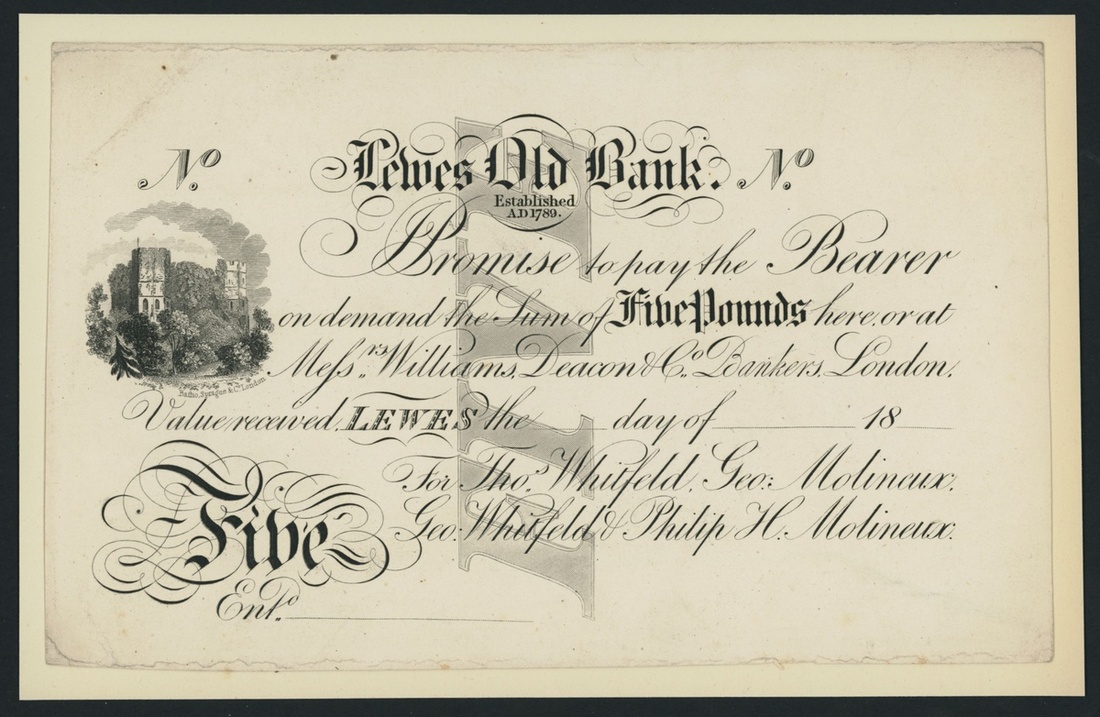 No. Lewes Old Bank. No.
Established
A.D 1789.
I Promise to pay the Bearer
on demand the Sum of Five Pounds here, or at
Messrs. Williams, Deacon & Co. Bankers, London.
Value received, LEWES the day of 18
For Thos. Whitfeld, Geo: Molineux,
Geo: Whitfeld & Philip H. Molineux.
Five
Entd.
Batho, Sprague & Co. London.